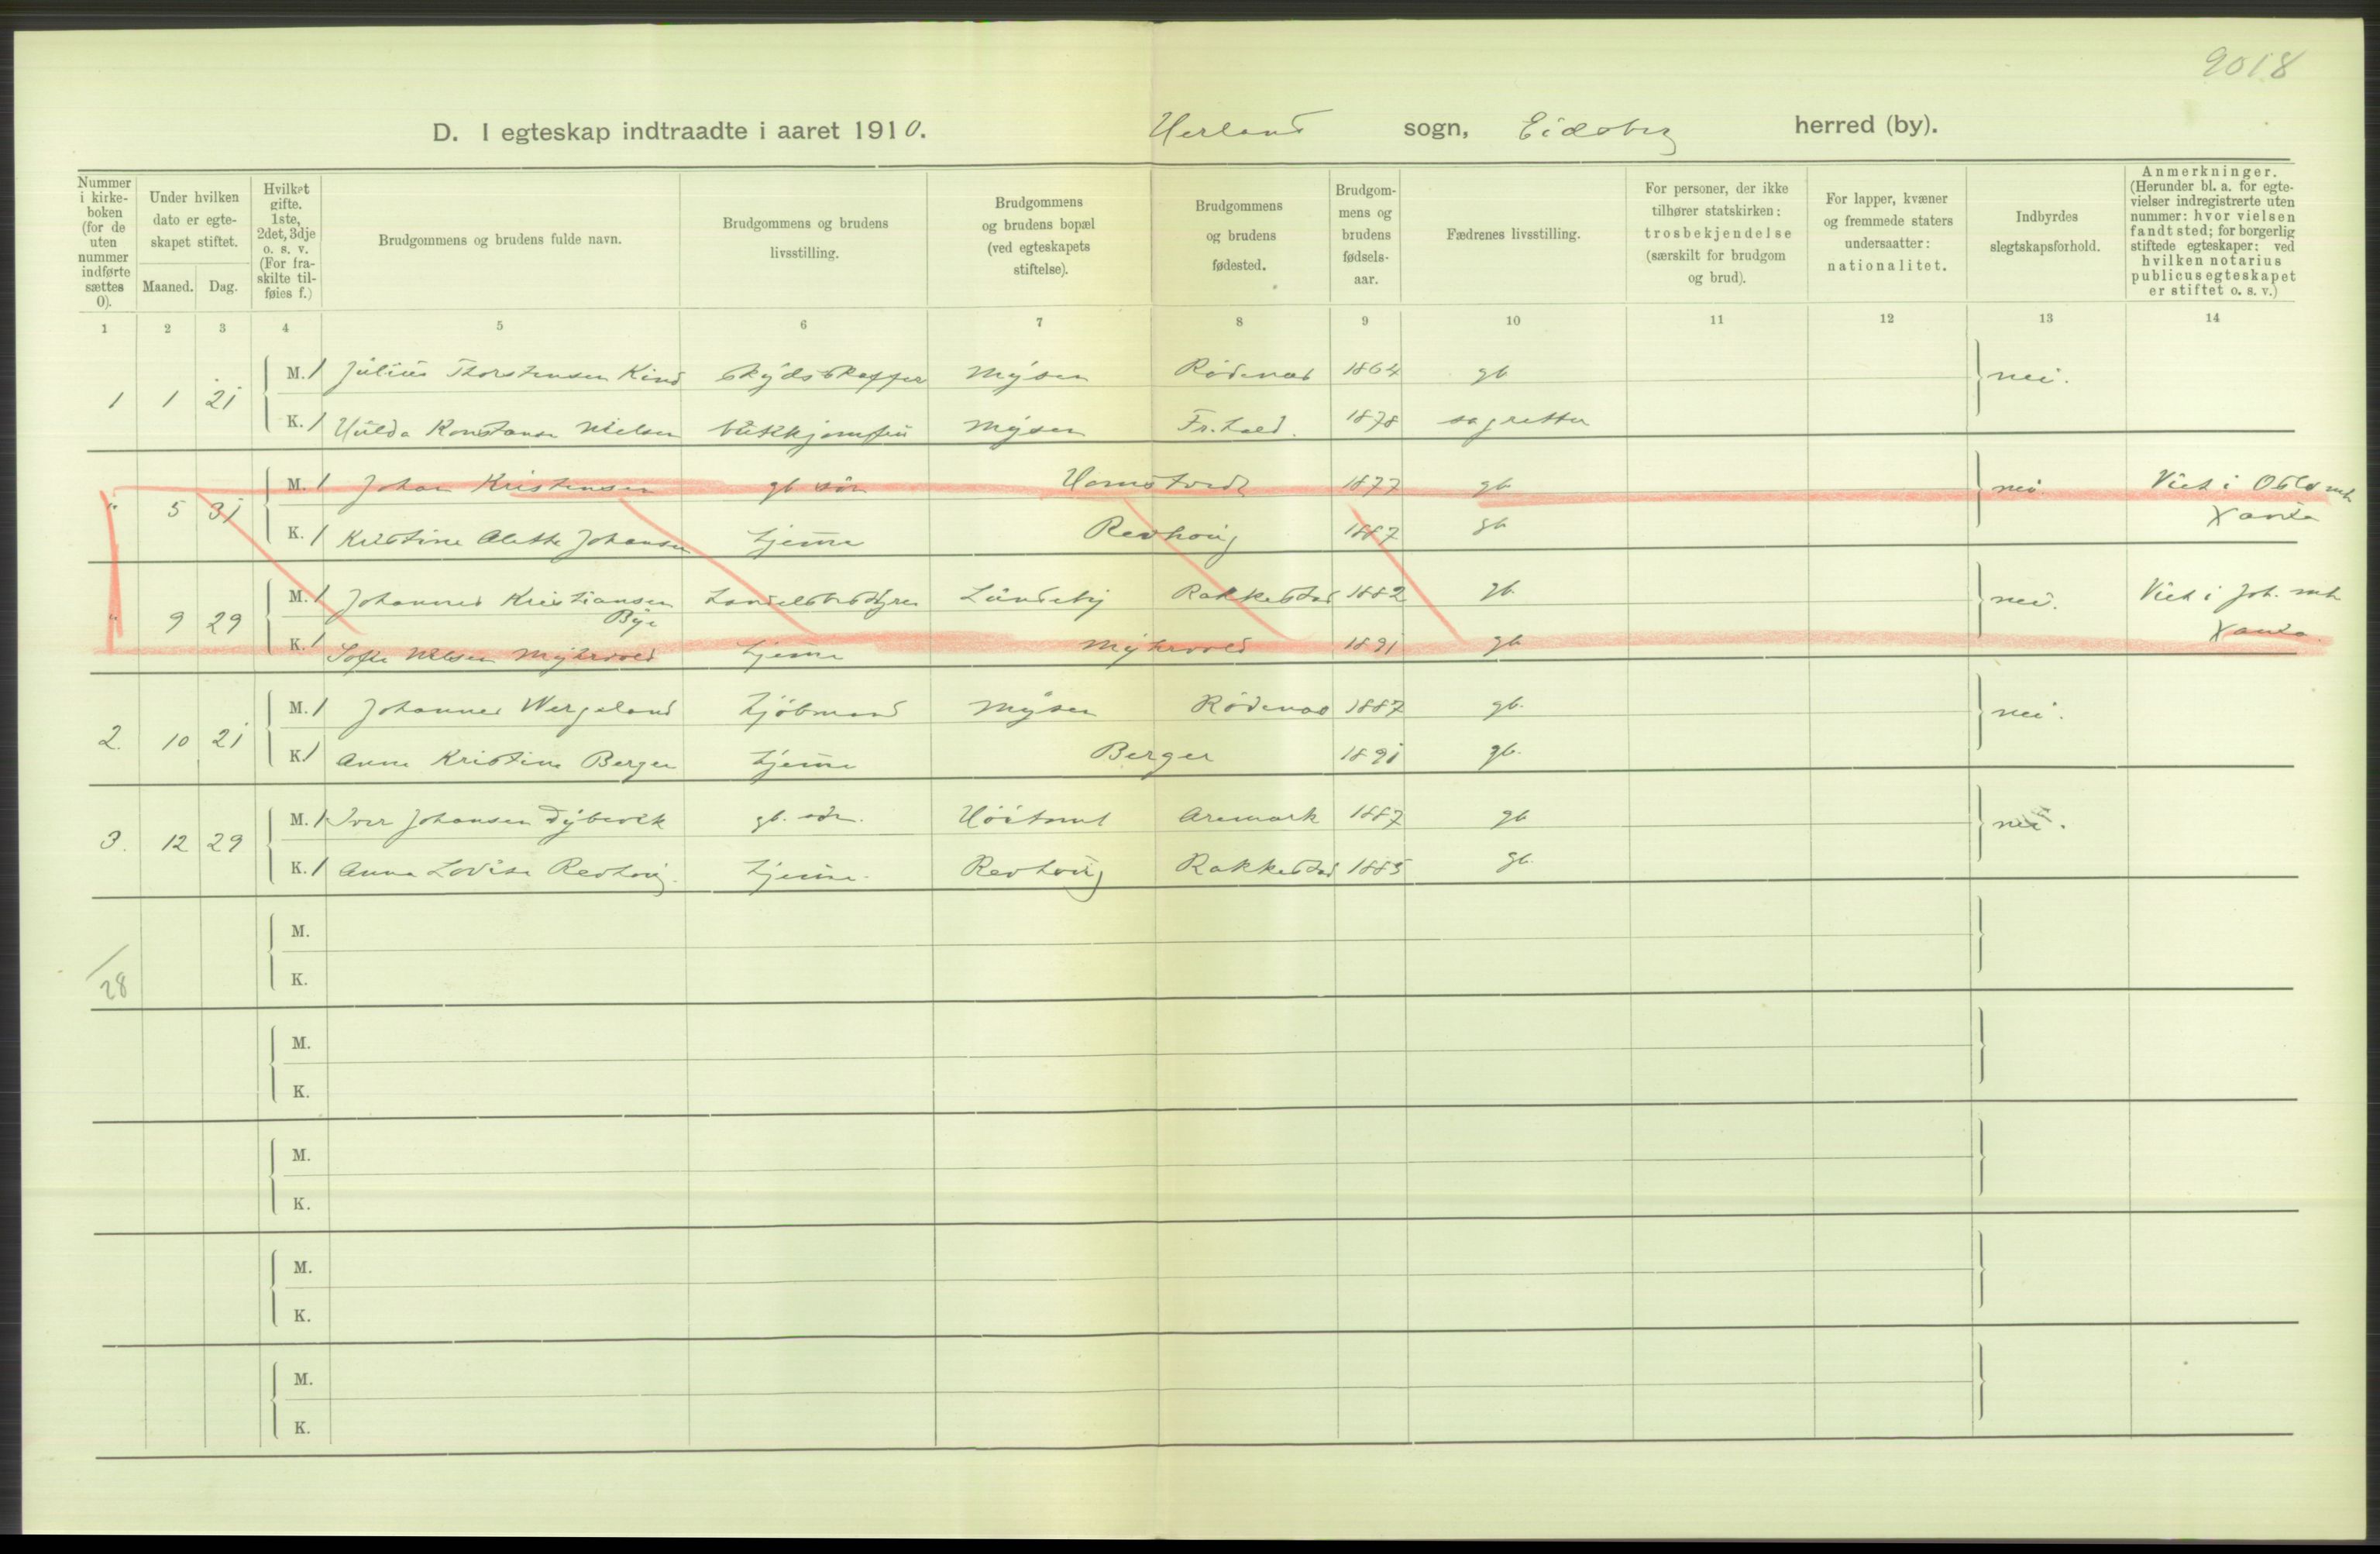 9018
D. I egteskap indtraadte i aaret 1910. Herland sogn, Eidsberg herred (by).
Nummer i kirke-boken (for de uten nummer indførte sættes 0).
Under hvilken dato er egte-skapet stiftet.
Maaned. Dag.
Hvilket gifte. 1ste, 2det, 3dje o. s. v. (For fra-skilte til-føies f.)
Brudgommens og brudens fulde navn.
Brudgommens og brudens livsstilling.
Brudgommens og brudens bopæl (ved egteskapets stiftelse).
Brudgommens og brudens fødested.
Brudgom-mens og brudens fødsels-aar.
Fædrenes livsstilling.
For personer, der ikke tilhører statskirken: trosbekjendelse (særskilt for brudgom og brud).
For lapper, kvæner og fremmede staters undersaatter: nationalitet.
Indbyrdes slegtskapsforhold.
Anmerkninger. (Herunder bl. a. for egte-vielser indregistrerte uten nummer: hvor vielsen fandt sted; for borgerlig stiftede egteskaper: ved hvilken notarius publicus egteskapet er stiftet o. s. v.)
1 2 3 4 5 6 7 8 9 10 11 12 13 14
1 1 21 M. 1 Julius Thorstensen Kind skydsskaffer Mysen Rødenæs 1864 gb nei.
K. 1 Hulda Konstanse Nielsen Mysen Fr.hald. 1878
" 5 31 M. 1 Johan Kristensen gb søn 1877 gb nei Viet i Oslo
K. 1 Kristine Alette Johansen hjemme Revhoug 1887 gb
" 9 29 M. 1 Johannes Kristiansen Bye Lundeby Rakkestad 1882 gb nei. Viet i Joh.
K. 1 Sofie Nilsen Myhrvold hjemme Myhrvold 1891 gb
2. 10 21 M. 1 Johannes Wergeland kjøbmand Mysen Rødenæs 1887 gb. nei.
K. 1 Anna Kristine Berger hjemme Berger 1891 gb.
3. 12 29 M. 1 Iver Johansen Dybevik gb. søn. Høitomt Aremark 1887 gb nei.
K. 1 Anna Lovise Revhoug. hjemme. Revhoug Rakkestad 1885 gb.
M.
K.
/28
M.
K.
M.
K.
M.
K.
M.
K.